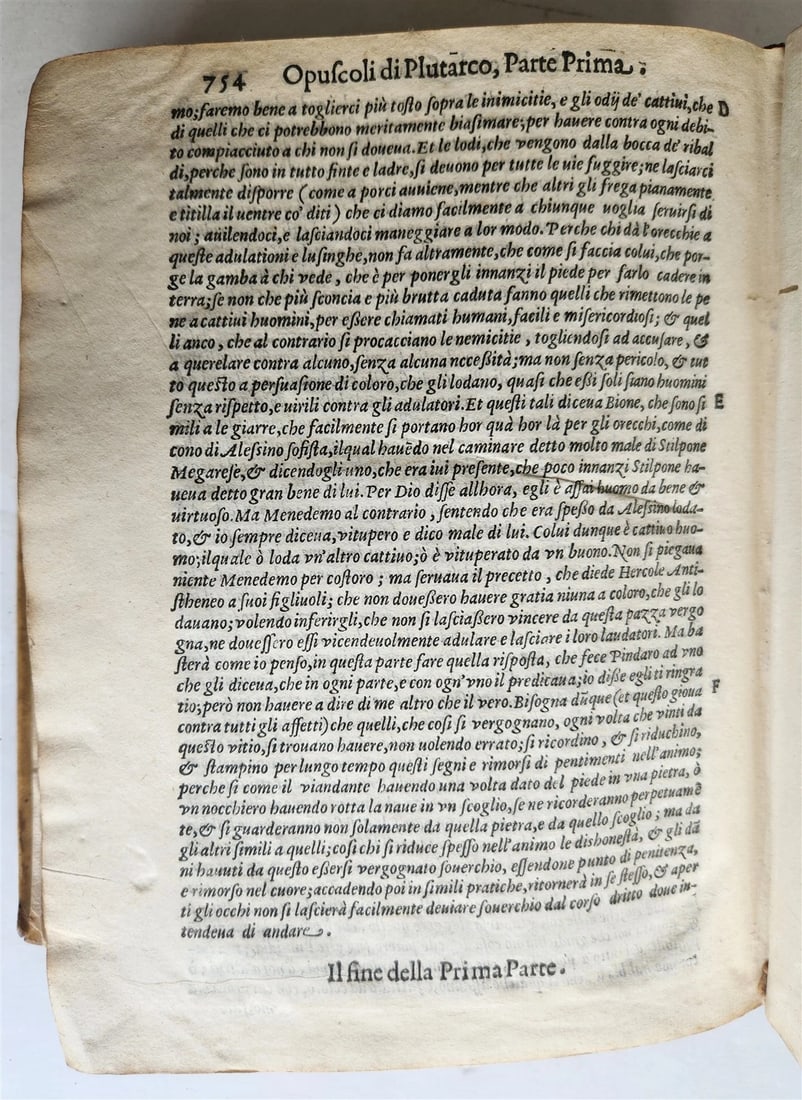 754 Opuſcoli di Plutarco, Parte Prima.
mo; faremo bene a toglierci più toſto ſopra le inimicitie, e gli odij de' cattiui, che D
di quelli che ci potrebbono meritamente biaſimare; per hauere contra ogni debi-
to compiacciuto a chi non ſi doueua. Et le lodi, che vengono dalla bocca de' ribal
di, perche ſono in tutto finte e ladre, ſi deuono per tutte le uie fuggire; ne laſciarci
talmente diſporre (come a porci auuiene, mentre che altri gli frega pianamente
e titilla il uentre co' diti) che ci diamo facilmente a chiunque uoglia ſeruirſi di
noi; auilendoci, e laſciandoci maneggiare a lor modo. Perche chi dà l'orecchie a
queſte adulationi e luſinghe, non fa altramente, che come ſi faccia colui, che por-
ge la gamba à chi vede, che è per ponergli innanzi il piede per farlo cadere in
terra; ſe non che più ſconcia e più brutta caduta fanno quelli che rimettono le pe
ne a cattiui huomini, per eßere chiamati humani, facili e miſericordioſi; & quel
li anco, che al contrario ſi procacciano le nemicitie, togliendoſi ad accuſare, &
a querelare contra alcuno, ſenza alcuna nceeßità; ma non ſenza pericolo, & tut
to queſto a perſuaſione di coloro, che gli lodano, quaſi che eßi ſoli ſiano huomini
ſenza riſpetto, e uirili contra gli adulatori. Et queſti tali diceua Bione, che ſono ſi E
mili a le giarre, che facilmente ſi portano hor quà hor là per gli orecchi, come di
cono di Aleſsino ſofiſta, ilqual hauēdo nel caminare detto molto male di Stilpone
Megareſe, & dicendogli uno, che era iui preſente, che poco innanzi Stilpone ha-
ueua detto gran bene di lui. Per Dio diſſe allhora, egli è aſſai huomo da bene &
uirtuoſo. Ma Menedemo al contrario, ſentendo che era ſpeßo da Aleſsino loda-
to, & io ſempre diceua, vitupero e dico male di lui. Colui dunque è cattiuo huo-
mo; ilquale ò loda vn'altro cattiuo; ò è vituperato da vn buono. Non ſi piegaua
niente Menedemo per coſtoro; ma ſeruaua il precetto, che diede Hercole Anti-
ſtheneo a ſuoi figliuoli; che non doueßero hauere gratia niuna a coloro, che gli lo
dauano; volendo inferirgli, che non ſi laſciaßero vincere da queſta pazza vergo
gna, ne doueſſero eſſi vicendeuolmente adulare e laſciare i loro laudatori. Ma ba
ſterà come io penſo, in queſta parte fare quella riſpoſta, che fece Pindaro ad vno
che gli diceua, che in ogni parte, e con ogn'vno il predicaua; io diße egli ti ringra
tio; però non hauere a dire di me altro che il vero. Biſogna dūque (et queſto gioua F
contra tutti gli affetti) che quelli, che coſi ſi vergognano, ogni volta che vinti da
queſto vitio, ſi trouano hauere, non uolendo errato; ſi ricordino, & ſi riduchino,
& ſtampino per lungo tempo queſti ſegni e rimorſi di pentimenti nell'animo;
perche ſi come il viandante hauendo una volta dato del piede in vna pietra, ò
vn nocchiero hauendo rotta la naue in vn ſcoglio, ſe ne ricorderanno perpetuamē
te, & ſi guarderanno non ſolamente da quella pietra, e da quello ſcoglio; ma da
gli altri ſimili a quelli; coſi chi ſi riduce ſpeſſo nell'animo le dishoneſtà, & gli dā
ni hauuti da queſto eßerſi vergognato ſouerchio, eſſendone punto di penitenza,
e rimorſo nel cuore; accadendo poi in ſimili pratiche, ritornerà in ſe ſteſſo, & aper
ti gli occhi non ſi laſcierà facilmente deuiare ſouerchio dal corſo dritto doue in-
tendeua di andare.
Il fine della Prima Parte.